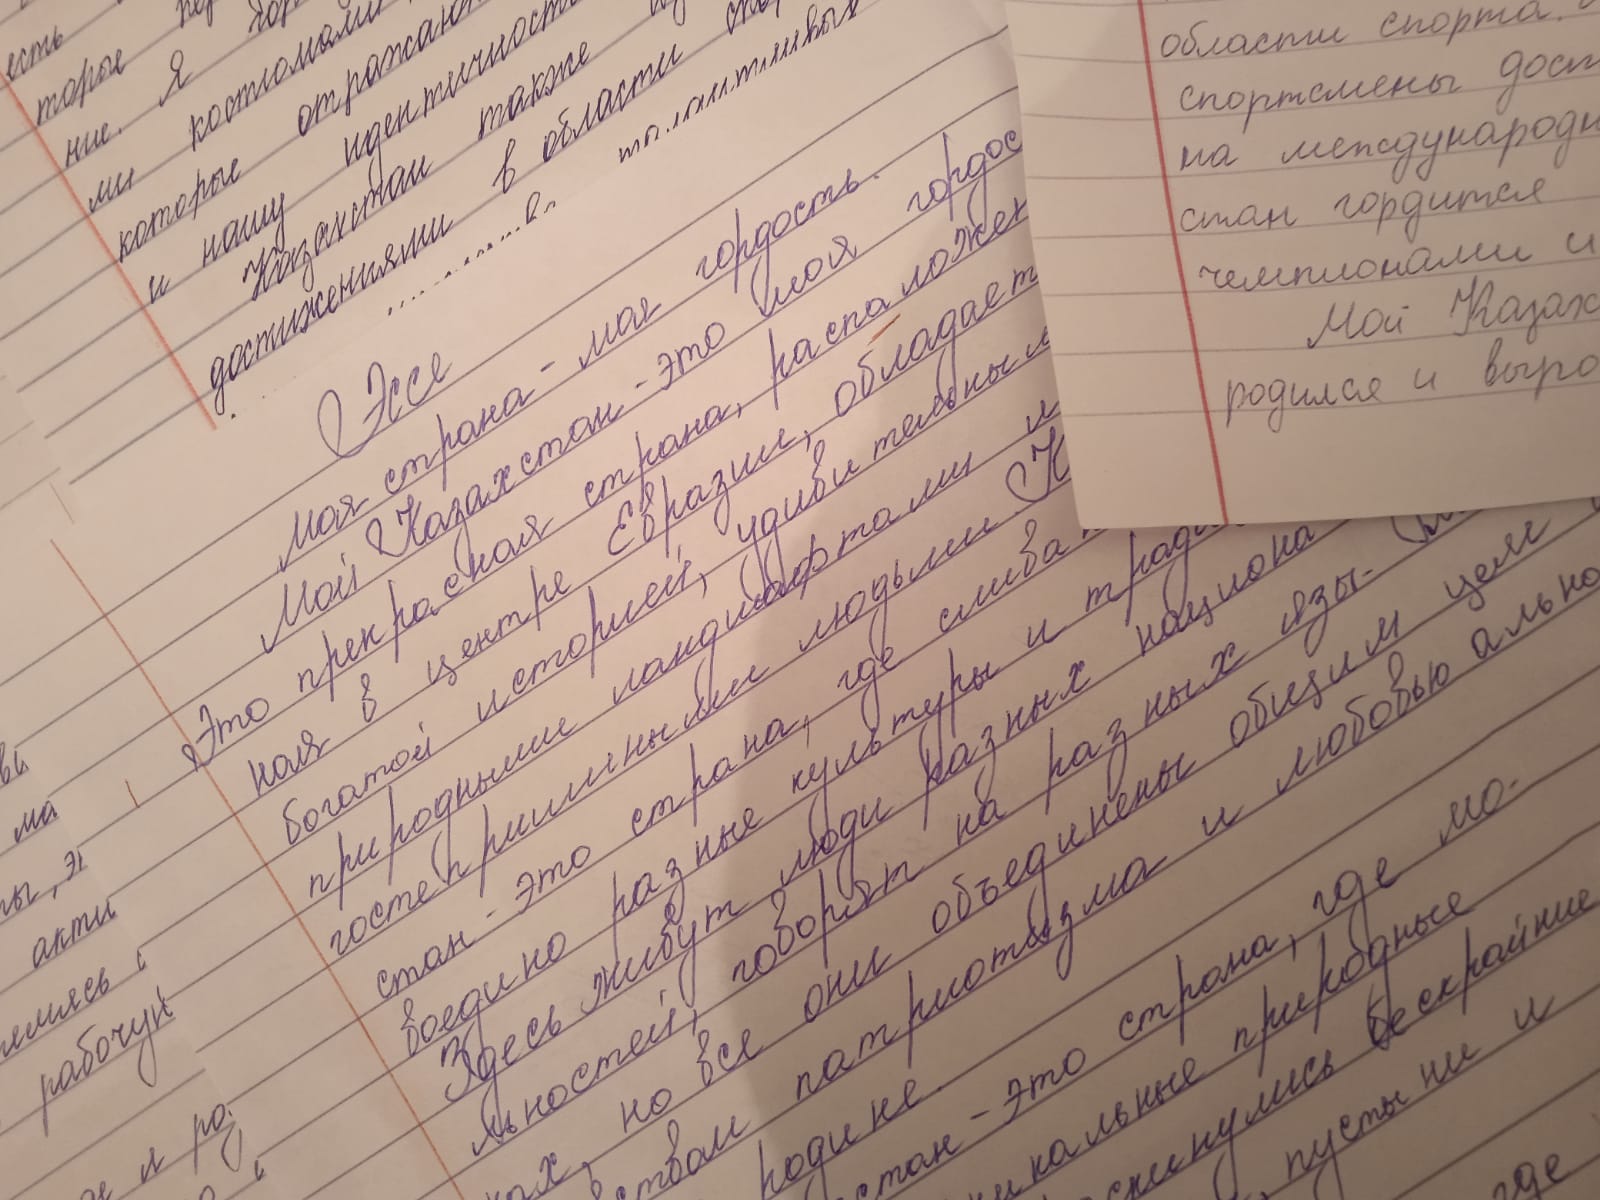 есть
торые
ние. Я
ми костюмами
которые отражают
и нашу идентичность
Казахстан также
достижениями в области
талантливых
Эссе
Моя страна - моя гордость.
Мой Казахстан - это моя гордос
Это прекрасная страна, расположен
ная в центре Евразии, обладает
богатой историей, удивительными
природными ландшафтами и
гостеприимными людьми. К
стан - это страна, где слива
воедино разные культуры и тради
Здесь живут люди разных национа
льностей, говорят на разных язы-
ках, но все они объединены общим целям
ством патриотизма и любовью
родине.
стан - это страна, где мо-
никальные природные
скинулись бескрайние
пустыни и
где
области спорта.
спортсмены дост
на международн
стан гордится
чемпионами и
Мой Казах
родился и выро
ма
ты, э
акти
емясь
рабочую